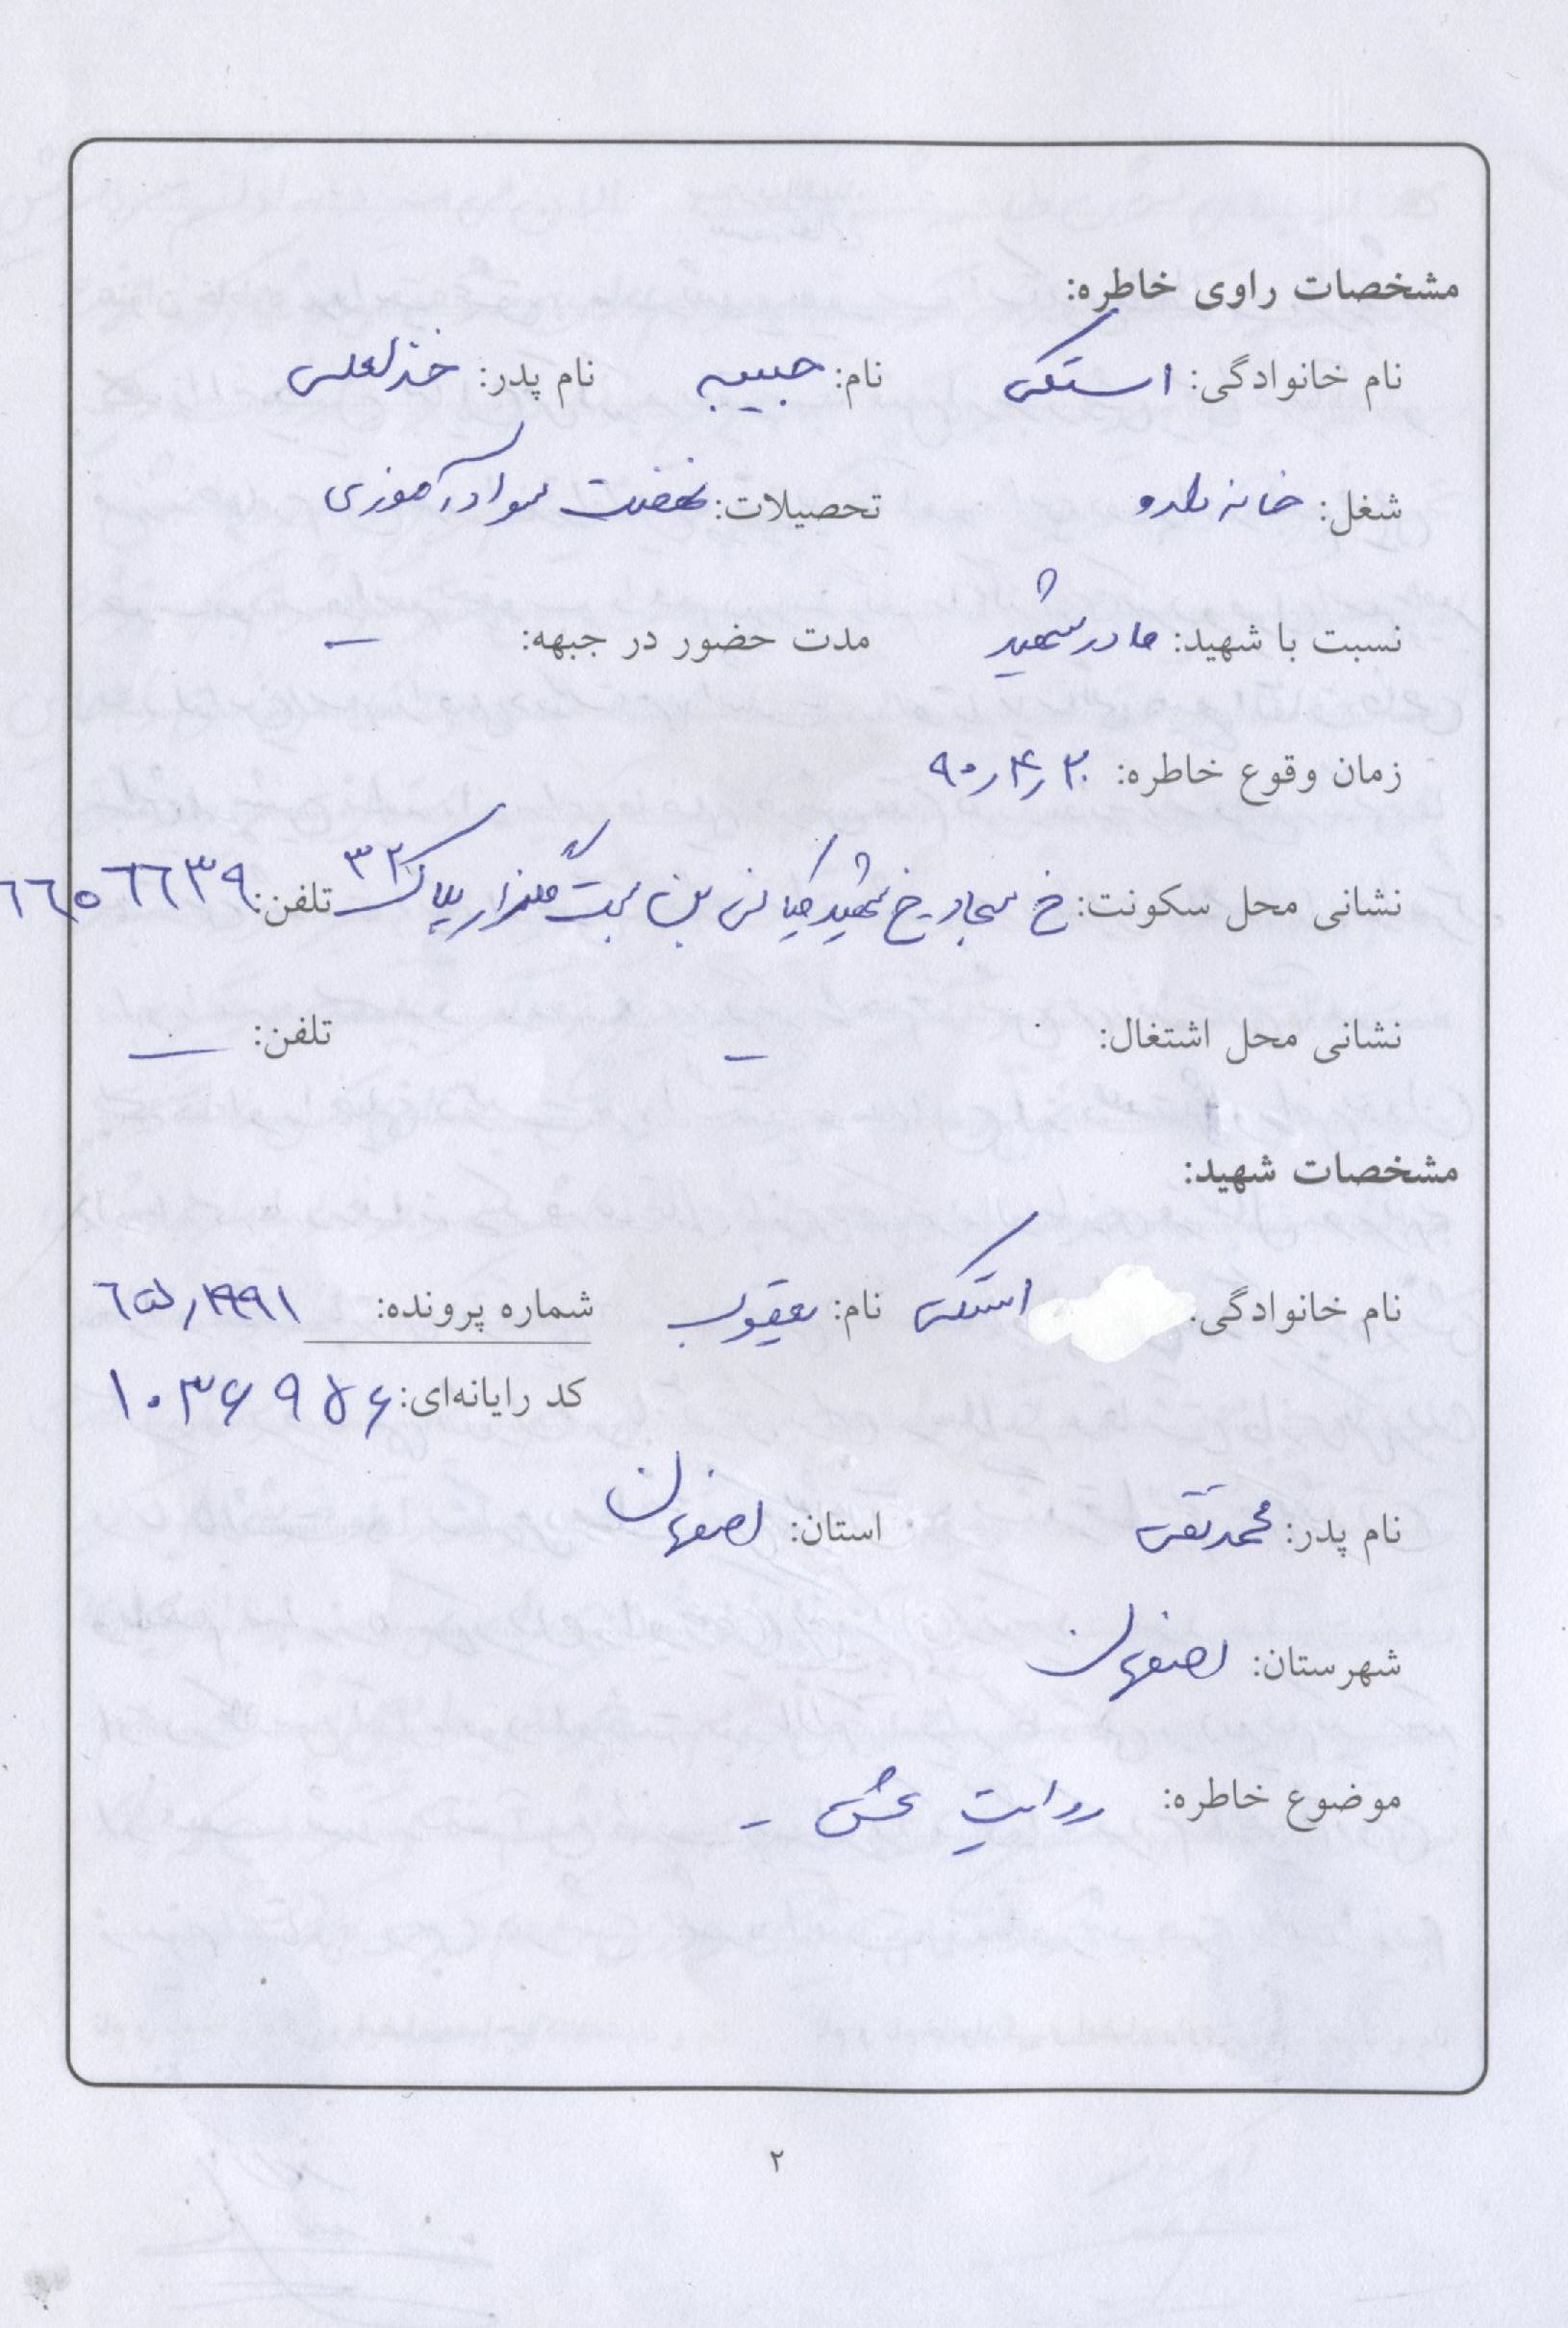 مشخصات راوی خاطره:
نام خانوادگی: استکی نام: حبیبه نام پدر:
شغل: خانه دار تحصیلات: نهضت سوادآموزی
نسبت با شهید: مادر شهید مدت حضور در جبهه: –
زمان وقوع خاطره: ۹۰٫۴٫۲۰
نشانی محل سکونت: خ سجاد خ شهید بن بست گلزار پلاک ۳۲ تلفن: ۶۶۵۶۶۳۹
نشانی محل اشتغال: – تلفن: –
مشخصات شهید:
نام خانوادگی: استکی نام: یعقوب شماره پرونده:
کد رایانه‌ای: ۱۰۳۶۹۵۶
نام پدر: محمدتقی استان: اصفهان
شهرستان: اصفهان
موضوع خاطره: روایت عشق –
۲